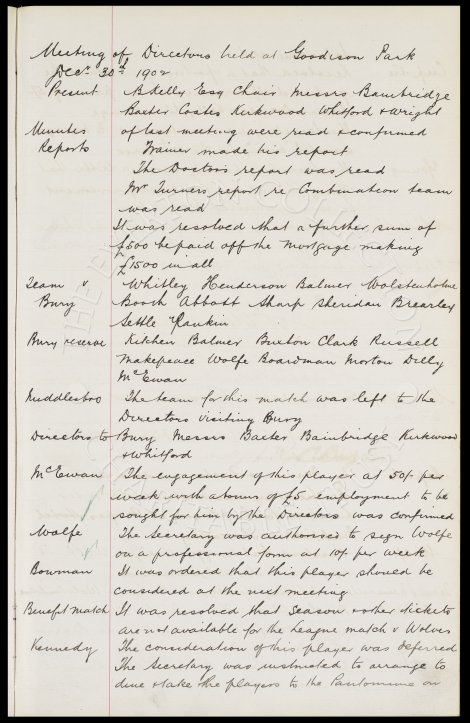 Meeting of Directors held at Goodison Park
Decr 30th 1902
Present B Kelly Esq Chair Messrs Bainbridge
Baxter Coates Kirkwood Whitford & Wright
Minutes of last meeting were read & confirmed
Reports Trainer made his report
The Doctors report was read
Mr Turners report re Combination team
was read
It was resolved that a further sum of
£500 be paid off the Mortgage making
£1500 in all
Team v Whitley Henderson Balmer Wolstenholme
Bury Booth Abbott Sharp Sheridan Brearley
Settle & Rankin
Bury reserve Kitchen Balmer Burton Clark Russell
Makepeace Wolfe Boardman Morton Dilly
McEwan
Middlesboro The team for this match was left to the
Directors visiting Bury
Directors to Bury Messrs Baxter Bainbridge Kirkwood
& Whitford
McEwan The engagement of this player at 50/- per
week with a bonus of £5 employment to be
sought for him by the Directors was confirmed
Wolfe The Secretary was authorised to sign Wolfe
on a professional form at 10/- per week
Bowman It was ordered that this player should be
considered at the next meeting
Benefit match It was resolved that Season & other tickets
are not available for the League match v Wolves
Kennedy The consideration of this player was deferred
The Secretary was instructed to arrange to
dine & take the players to the Pantomime on